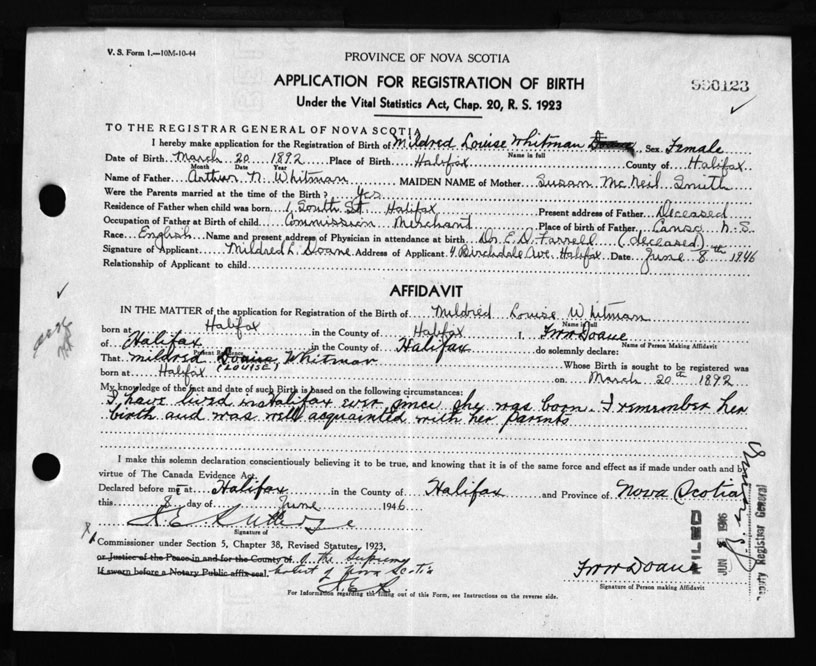 V. S. Form 1.—10M-10-44
PROVINCE OF NOVA SCOTIA
APPLICATION FOR REGISTRATION OF BIRTH
Under the Vital Statistics Act, Chap. 20, R. S. 1923
TO THE REGISTRAR GENERAL OF NOVA SCOTIA
I hereby make application for the Registration of Birth of Mildred Louise Whitman Doane Sex Female
Name in full
Date of Birth March 20 1892 Place of Birth Halifax County of Halifax
Month Date Year
Name of Father Arthur N. Whitman MAIDEN NAME of Mother Susan McNeil Smith
Were the Parents married at the time of the Birth? Yes
Residence of Father when child was born 1 South St. Halifax Present address of Father Deceased
Occupation of Father at Birth of child Commission Merchant Place of birth of Father Canso N.S.
Race English Name and present address of Physician in attendance at birth Dr. E. D. Farrell (deceased)
Signature of Applicant Mildred L. Doane Address of Applicant 4 Birchdale Ave. Halifax Date June 8th 1946
Relationship of Applicant to child
AFFIDAVIT
IN THE MATTER of the application for Registration of the Birth of Mildred Louise Whitman
Name in full
born at Halifax in the County of Halifax I, FWW Doane
Name of Person Making Affidavit
of Halifax in the County of Halifax do solemnly declare:
Present Residence
That Mildred Doane Whitman Whose Birth is sought to be registered was
(LOUISE)
born at Halifax on March 20th 1892
My knowledge of the fact and date of such Birth is based on the following circumstances:
I have lived in Halifax ever since she was born. I remember her
birth and was well acquainted with her parents
I make this solemn declaration conscientiously believing it to be true, and knowing that it is of the same force and effect as if made under oath and by
virtue of The Canada Evidence Act.
Declared before me at Halifax in the County of Halifax and Province of Nova Scotia
this 8 day of June 1946
Signature of
A Commissioner under Section 5, Chapter 38, Revised Statutes, 1923,
or Justice of the Peace in and for the County of of the Supreme
If sworn before a Notary Public affix seal. Court of Nova Scotia
FWW Doane
Signature of Person making Affidavit
For Information regarding the filling out of this Form, see Instructions on the reverse side.
FILED
Deputy Registrar General